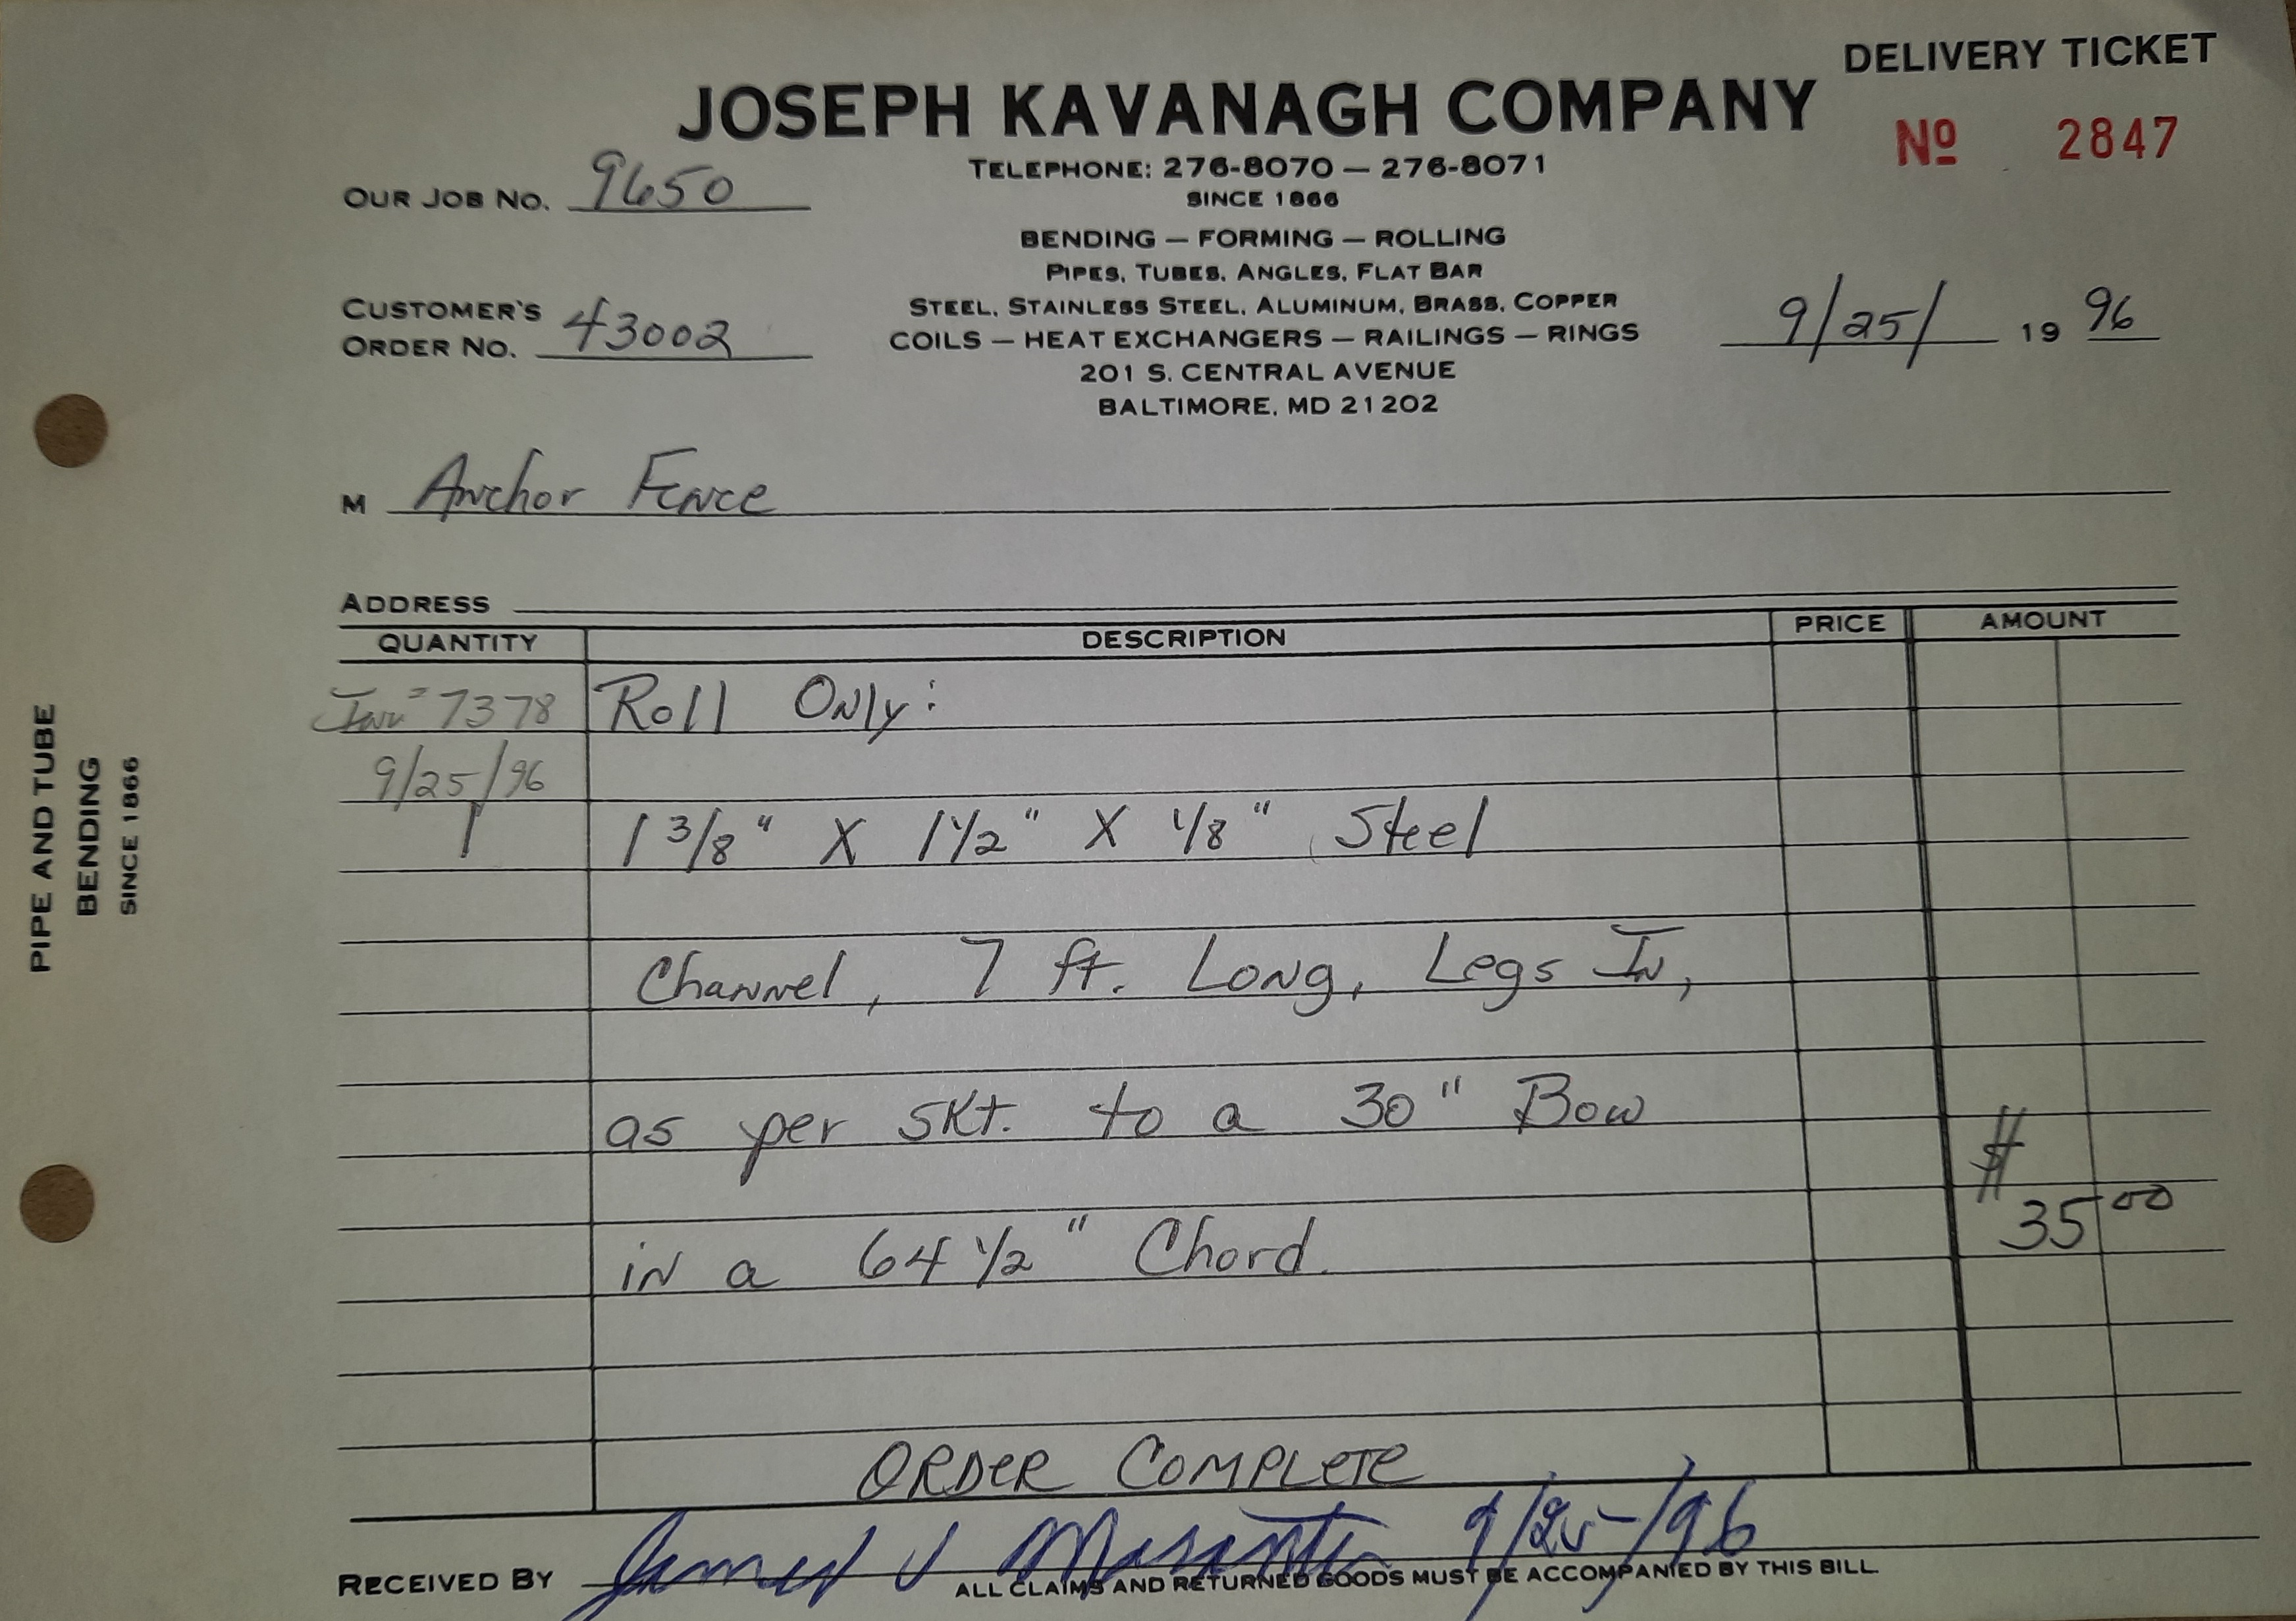 DELIVERY TICKET
JOSEPH KAVANAGH COMPANY
Nº 2847
TELEPHONE: 276-8070 — 276-8071
OUR JOB NO. 9650
SINCE 1866
BENDING — FORMING — ROLLING
PIPES, TUBES, ANGLES, FLAT BAR
CUSTOMER'S
ORDER NO. 43002
STEEL, STAINLESS STEEL, ALUMINUM, BRASS, COPPER
COILS — HEAT EXCHANGERS — RAILINGS — RINGS
9/25/ 19 96
201 S. CENTRAL AVENUE
BALTIMORE, MD 21202
M Anchor Fence
ADDRESS
QUANTITY DESCRIPTION PRICE AMOUNT
Inv# 7378 Roll Only:
9/25/96
1 1 3/8" X 1 1/2" X 1/8" Steel
Channel, 7 ft. Long, Legs In,
as per SKt. to a 30" Bow
in a 64 1/2" Chord.
$ 35 00
ORDER COMPLETE
RECEIVED BY James J 9/25/96
ALL CLAIMS AND RETURNED GOODS MUST BE ACCOMPANIED BY THIS BILL.
PIPE AND TUBE
BENDING
SINCE 1866